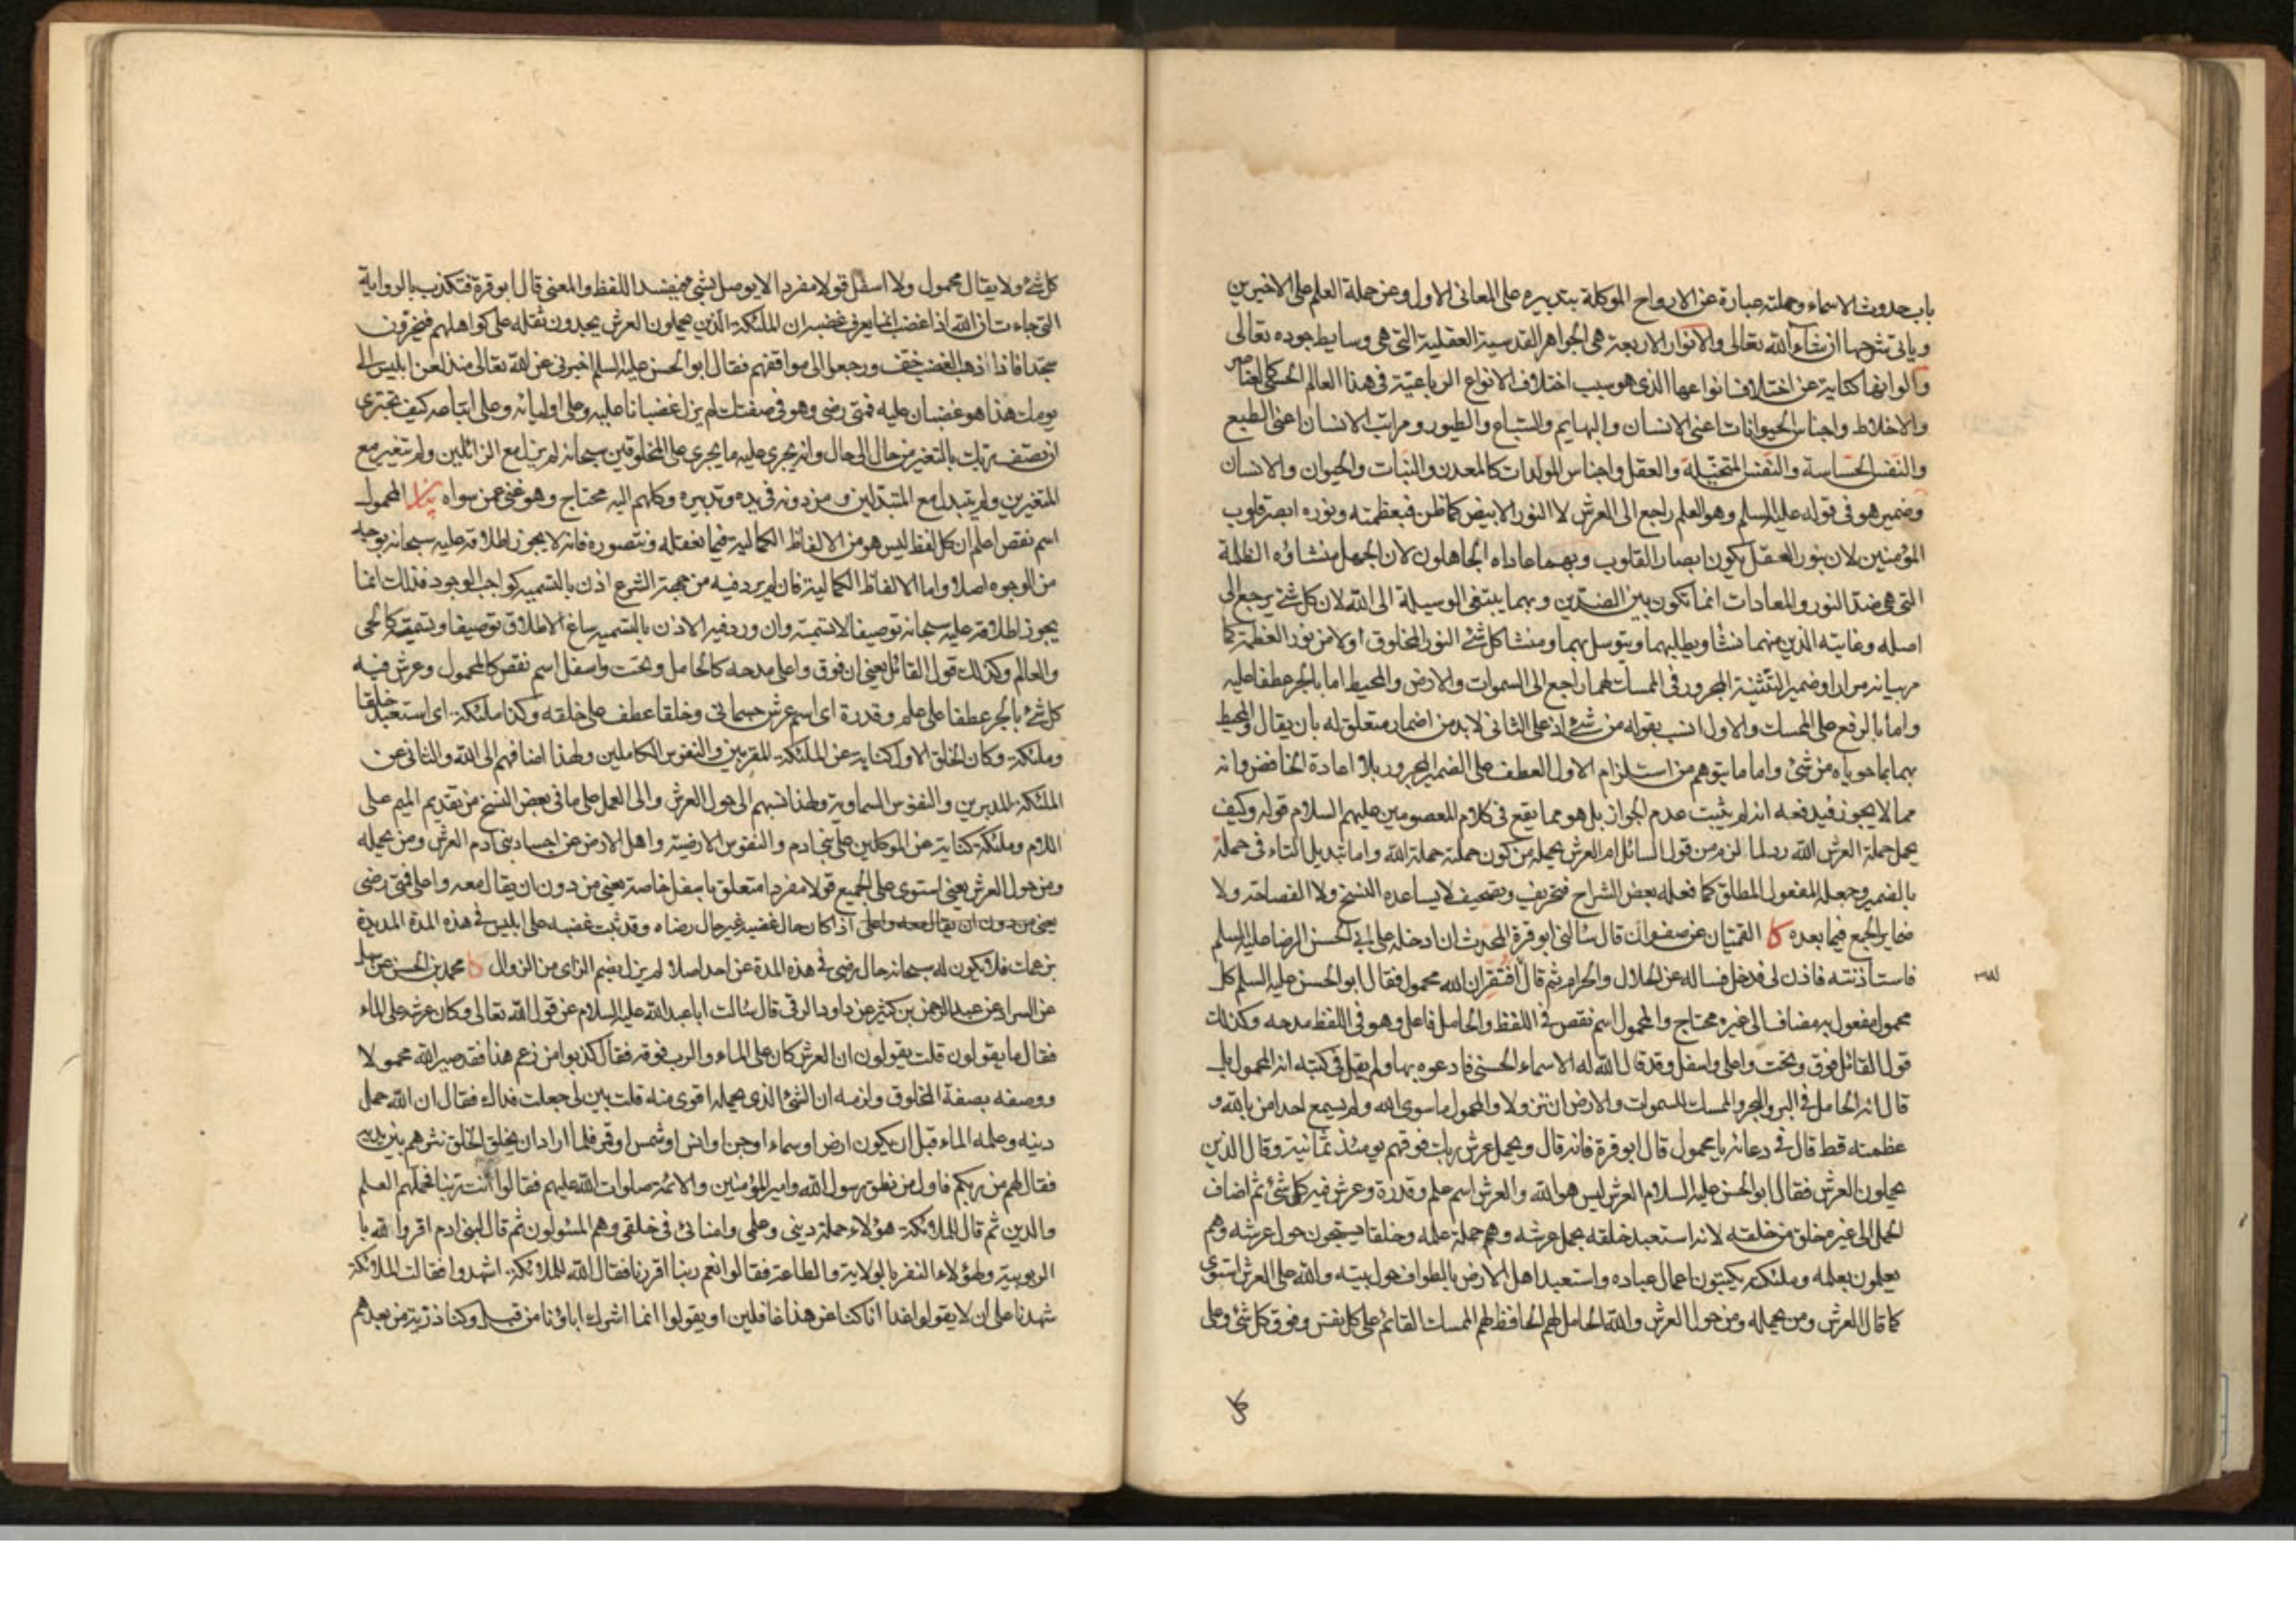 باب حدوث الاسماء وحملته عبارة عن الارواح الموكلة بتدبيره على المعانى الاول وعن حملة العلم على الاخيرين
وياتى شرحها ان شاء الله تعالى والانوار الاربعة هى الجواهر القدسية العقلية التى هى وسايط جوده تعالى
والوانها كناية عن اختلاف انواعها الذى هو سبب اختلاف الانواع الرباعية فى هذا العالم الحسى كالعناصر
والاخلاط واجناس الحيوانات اعنى الانسان والبهايم والسباع والطيور ومراتب الانسان اعنى الطبع
والنفس الحساسة والنفس المتخيلة والعقل واجناس المولدات كالمعدن والنبات والحيوان والانسان
وضمير هو فى قوله عليه السلم وهو العلم راجع الى العرش لا النور الابيض كما ظن فبعظمته ونوره ابصر قلوب
المؤمنين لان بنور العقل يكون ابصار القلوب وبهما عاداه الجاهلون لان الجهل منشاؤه الظلمة
التى هى ضد النور والمعادات انما تكون بين الضدين وبهما يبتغى الوسيلة الى الله لان كل شئ يرجع الى
اصله وغايته الذين منهما نشا ويطلبهما ويتوسل بهما ومنشا كل شئ النور المخلوق اولا من نور العظمة كما
مر بيانه مرارا وضمير التثنية المجرور فى الممسك لهما راجع الى السموات والارض والمحيط اما بالجر عطفا عليه
واما بالرفع على الممسك والاول انسب بقوله من شئ اذ على الثانى لابد من اضمار متعلق له بان يقال والمحيط
بهما بما حوياه من شئ واما ما يتوهم من استلزام الاول العطف على الضمير المجرور بلا اعادة الخافض وانه
مما لا يجوز فيدفعه انه لم يثبت عدم الجواز بل هو مما يقع فى كلام المعصومين عليهم السلام قوله وكيف
يحمل حملة العرش الله رد لما لزم من قول السائل ام العرش يحمله من كون حملته حملة الله واما تبديل التاء فى حملة
بالضمير وجعله المفعول المطلق كما فعله بعض الشراح فتحريف وتصحيف لا يساعده النسخ ولا الفصاحة ولا
ضماير الجمع فيما بعده كا القميان عن صفوان قال سالنى ابو قرة المحدث ان ادخله على ابى الحسن الرضا عليه السلم
فاستاذنته فاذن لى فدخل فساله عن الحلال والحرام ثم قال افتقر ان الله محمول فقال ابو الحسن عليه السلم كل
محمول مفعول به مضاف الى غيره محتاج والمحمول اسم نقص فى اللفظ والحامل فاعل وهو فى اللفظ مدحه وكذلك
قول القائل فوق وتحت واعلى واسفل وقد قال الله له الاسماء الحسنى فادعوه بها ولم يقل فى كتبه انه المحمول بل
قال انه الحامل فى البر والبحر والممسك للسموات والارض ان تزولا والمحمول ما سوى الله ولم يسمع احد امن بالله و
عظمته قط قال فى دعائه يا محمول قال ابو قرة فانه قال ويحمل عرش ربك فوقهم يومئذ ثمانية وقال الذين
يحملون العرش فقال ابو الحسن عليه السلام العرش ليس هو الله والعرش اسم علم وقدرة وعرش فيه كل شئ ثم اضاف
الحمل الى غيره خلق من خلقه لانه استعبد خلقه بحمل عرشه وهم حملة علمه وخلقا يسبحون حول عرشه وهم
يعملون بعلمه وملئكة يكتبون اعمال عباده واستعبد اهل الارض بالطواف حول بيته والله على العرش استوى
كما قال العرش ومن يحمله ومن حول العرش والله الحامل لهم الحافظ لهم الممسك القائم على كل نفس وفوق كل شئ وعلى
كل
كل شئ ولا يقال محمول ولا اسفل قولا مفردا لا يوصل بشئ فيفسد اللفظ والمعنى قال ابو قرة فتكذب بالرواية
التى جاءت ان الله اذا غضب انما يعرف غضبه ان الملئكة الذين يحملون العرش يجدون ثقله على كواهلهم فيخرون
سجدا فاذا ذهب الغضب خف ورجعوا الى مواقفهم فقال ابو الحسن عليه السلم اخبرنى عن الله تعالى منذ لعن ابليس الى
يومك هذا هو غضبان عليه فمتى رضى وهو فى صفتك لم يزل غضبانا عليه وعلى اوليائه وعلى اتباعه كيف تجترى
ان تصف ربك بالتغير من حال الى حال وانه يجرى عليه ما يجرى على المخلوقين سبحانه لم يزل مع الزائلين ولم يتغير مع
المتغيرين ولم يتبدل مع المتبدلين ومن دونه فى يده وتدبيره وكلهم اليه محتاج وهو غنى عمن سواه بيان المحمول
اسم نقص اعلم ان كل لفظ ليس هو من الالفاظ الكمالية فيما نعقله ونتصوره فانه لا يجوز اطلاقه عليه سبحانه بوجه
من الوجوه اصلا واما الالفاظ الكمالية فان لم يرد فيه من جهة الشرع اذن بالتسمية كواجب الوجود فذلك انما
يجوز اطلاقه عليه سبحانه توصيفا لا تسمية وان ورد فيه الاذن بالتسمية ساغ الاطلاق توصيفا وتسمية كالحى
والعالم وكذلك قول القائل يعنى ان فوق واعلى مدحه كالحامل وتحت واسفل اسم نقص كالمحمول وعرش فيه
كل شئ بالجر عطفا على علم وقدرة اى اسم عرش جسمانى وخلقا عطف على خلقه وكذا ملئكة اى استعبد خلقا
وملئكة وكان الخلق الاول كناية عن الملئكة المقربين والنفوس الكاملين ولهذا اضافهم الى الله والثانى عن
الملئكة المدبرين والنفوس السماوية ولهذا نسبهم الى حول العرش والى العمل على ما فى بعض النسخ من تقديم الميم على
اللام وملئكة كناية عن الموكلين على بنى ادم والنفوس الارضية واهل الارض عن اجساد بنى ادم العرش ومن يحمله
ومن حول العرش يعنى استوى على الجميع قولا مفردا متعلق باسفل خاصة يعنى من دون ان يقال معه واعلى فمتى رضى
يعنى من دون ان يقال معه واعلى اذا كان حال غضبه غير حال رضاه وقد ثبت غضبه على ابليس فى هذه المدة المديدة
بزعمك فلا يكون له سبحانه حال رضى فى هذه المدة عن احد اصلا لم يزل بضم الزاى من الزوال كا محمد بن الحسن عن سهل
عن السراد عن عبد الرحمن بن كثير عن داود الرقى قال سالت ابا عبد الله عليه السلام عن قول الله تعالى وكان عرشه على الماء
فقال ما يقولون قلت يقولون ان العرش كان على الماء والرب فوقه فقال كذبوا من زعم هذا فقد صير الله محمولا
ووصفه بصفة المخلوق ولزمه ان الشئ الذى يحمله اقوى منه قلت بين لى جعلت فداك فقال ان الله حمل
دينه وعلمه الماء قبل ان يكون ارض او سماء او جن او انس او شمس او قمر فلما اراد ان يخلق الخلق نثرهم بين يديه
فقال لهم من ربكم فاول من نطق رسول الله وامير المؤمنين والائمة صلوات الله عليهم فقالوا انت ربنا فحملهم العلم
والدين ثم قال للملائكة هؤلاء حملة دينى وعلمى وامنائى فى خلقى وهم المسئولون ثم قال لبنى ادم اقروا لله با
الربوبية ولهؤلاء النفر بالولاية والطاعة فقالوا نعم ربنا اقررنا فقال الله للملائكة اشهدوا فقالت الملائكة
شهدنا على ان لا يقولوا غدا انا كنا عن هذا غافلين او يقولوا انما اشرك اباؤنا من قبل وكنا ذرية من بعدهم